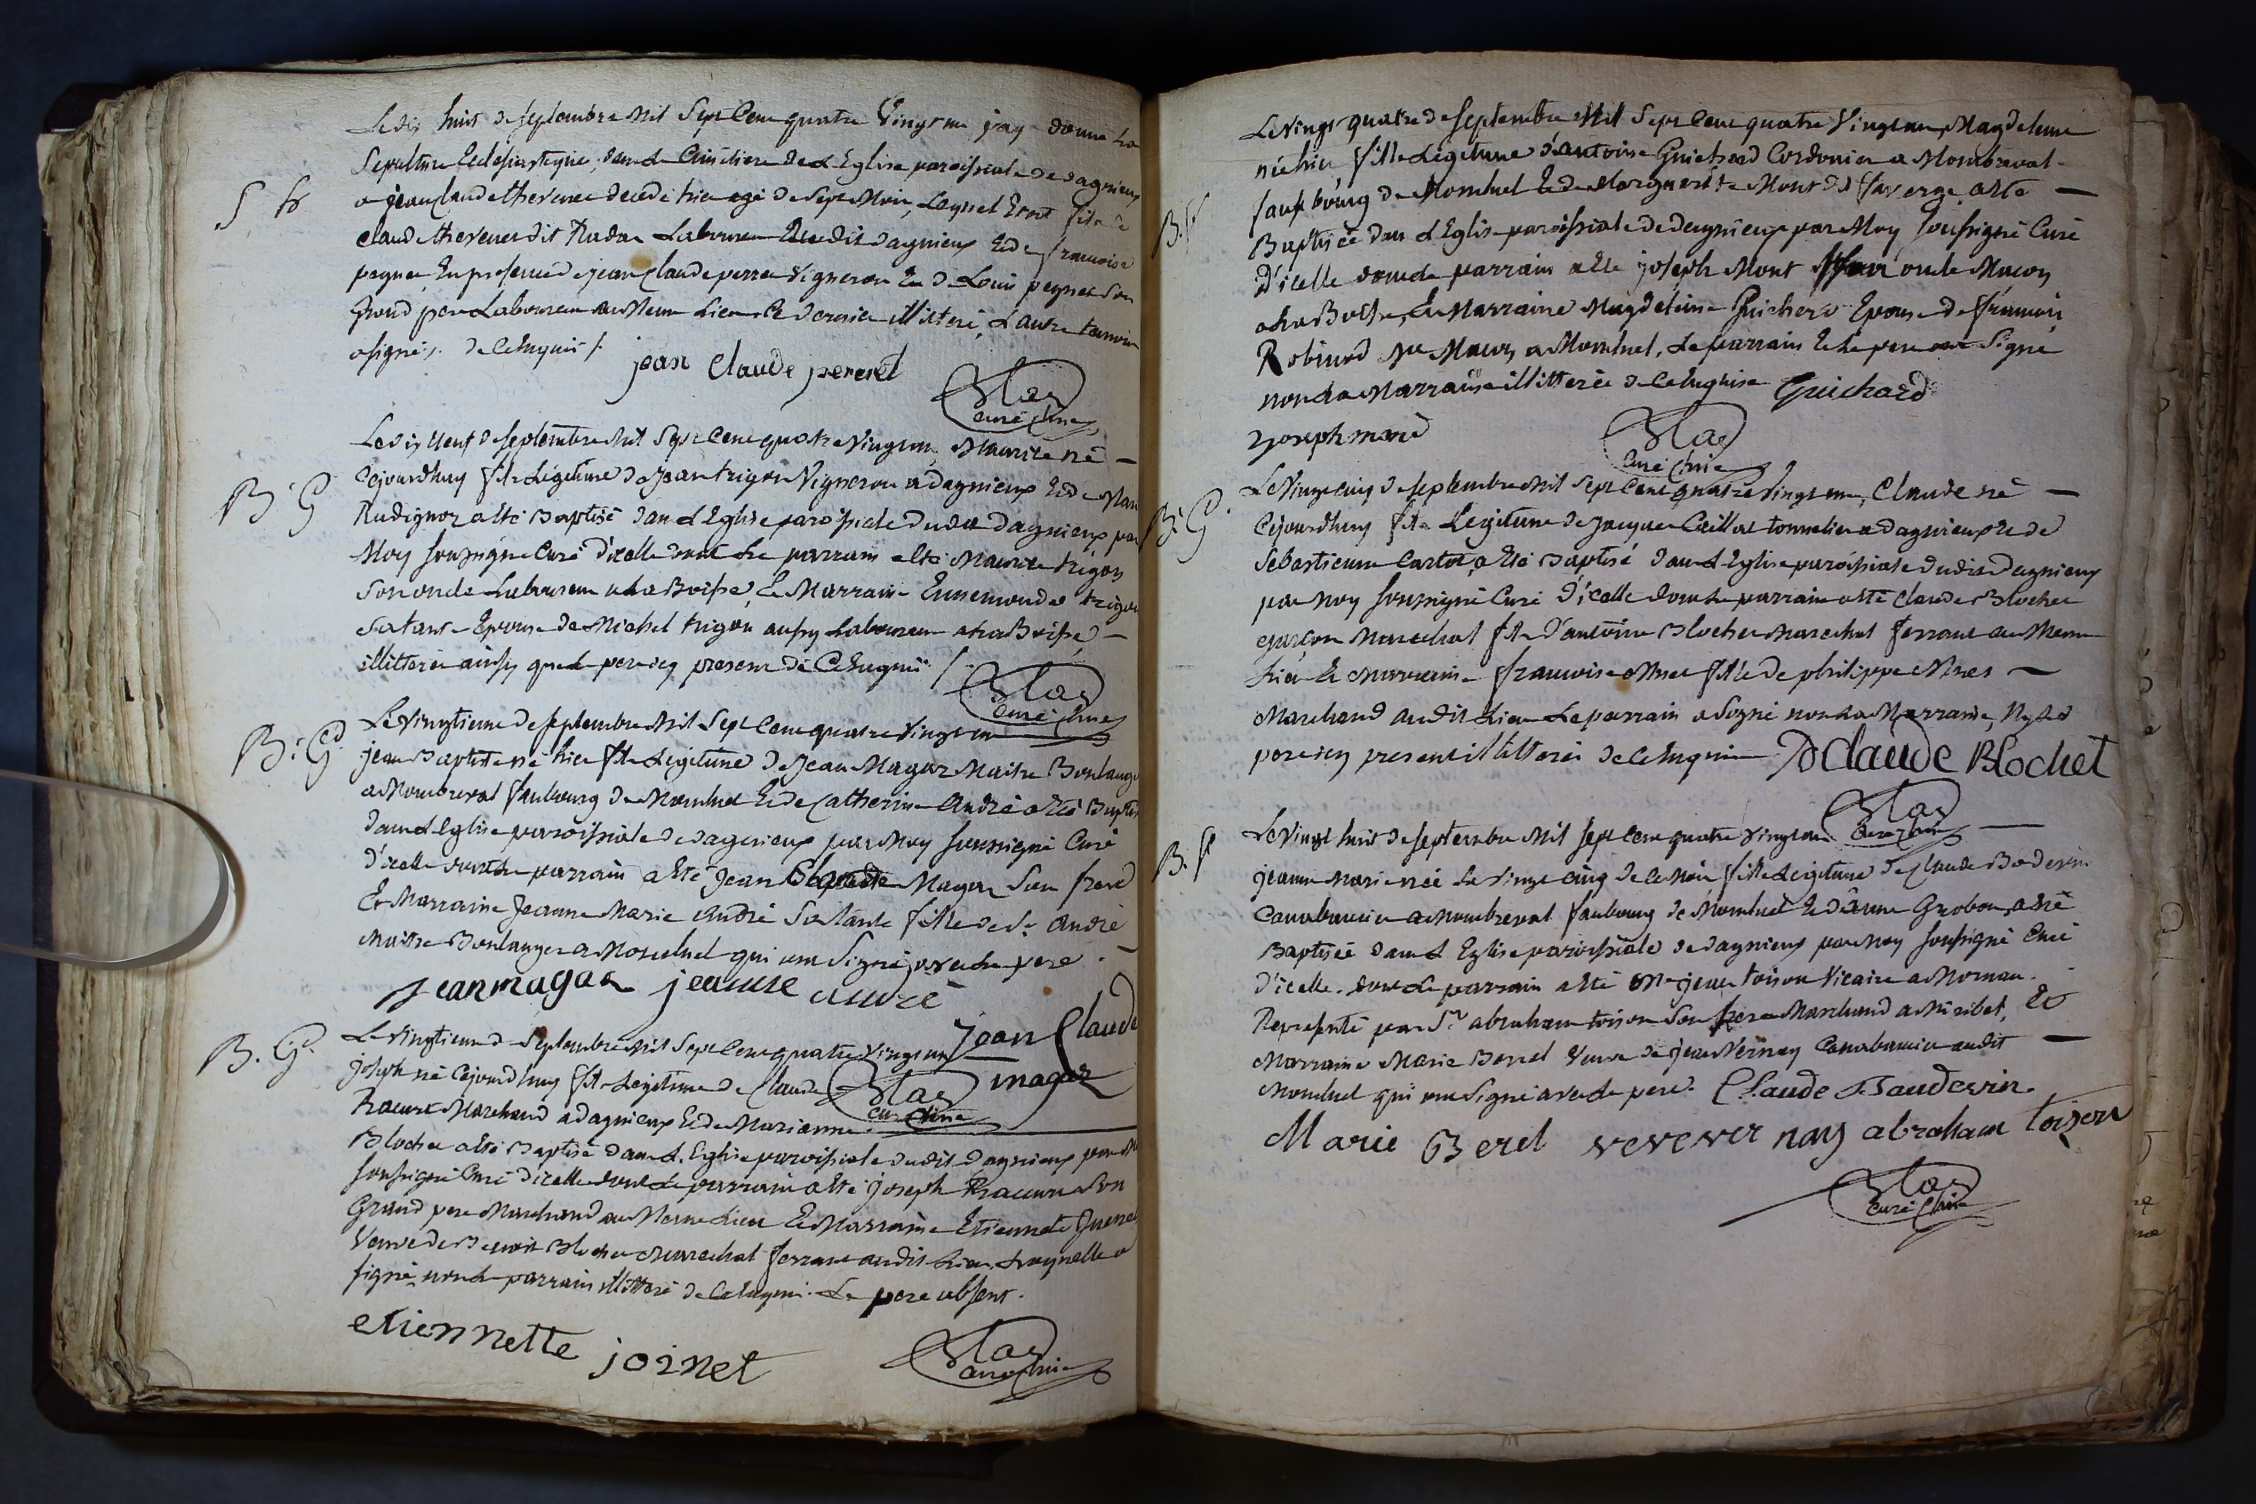 Le dix huit de septembre Mil Sept Cent quatre Vingt un jay donné La
Sepulture Eclesiastique, dans le Cimétiere de L Eglise paroissiale de dagnieux
S fs a jean Claude thevenet decedé hier agé de Sept Mois, Lequel Etoit fils de
Claude thevenet dit Laboureur audit dagnieux Et de francoise
peignet En presence de jean Claude perret Vigneron Et de Louis peignet Son
Grand pere Laboureur au Meme Lieu Ce dernier illiteré, L autre temoin
a signé, de Ce Enquis /.
jean Claude pereret
Curé
Le dix Neuf de septembre Mil Sept Cent quatre Vingt un Maurice né
B. G Cejourdhuy fils Légitime de Jean trigon Vigneron a Dagnieux Et de
Rudignoz a Eté Baptisé dans L Eglise paroissiale dudit Dagnieux par
Moy soussigné Curé d'icelle dont Le parrain a Eté Maurice trigon
Son oncle Laboureur a La Boisse, La Marraine Ennemonde trigon
Sa tante Epouse de Michel trigon aussy Laboureur a La Boisse
illitteré ainsy que Le pere icy present de Ce Enquis /.
Curé
Le Vingtieme de septembre Mil Sept Cent quatre Vingt un
B. Gd. jean Baptiste né hier fils Légitime de Jean Magaz Maitre Boulanger
a Monbreval faubourg de Montluel Et de Catherine André a Eté Baptisé
dans L Eglise paroissiale de dagnieux par Moy soussigné Curé
d'icelle dont Le parrain a Eté Jean Claude Magaz Son frere
Et Marraine Jeanne Marie André Sa tante fille de Sr. André
Maitre Boulanger a Montluel qui ont Signé avec Le pere.
jean magaz jeanne andrè
jean Claude
magaz
B. G. Le Vingtieme de Septembre Mil Sept Cent quatre Vingt un
joseph né Cejourdhuy fils Legitime de Claude
Marchand a dagnieux Et de Marianne
Curé
Blochet a Eté Baptisé dans L Eglise paroissiale dudit Dagnieux par Moy
soussigné Curé d'icelle dont Le parrain a Eté joseph Son
Grand pere Marchand au Meme Lieu Et Marraine Etiennette
Veuve de Benoit Blochet Marechal ferrant audit Lieu, Laquelle a
signé non Le parrain illitteré de Ce Enquis. Le pere absent.
etiennette joinet
Curé
Le Vingt quatre de septembre Mil Sept Cent quatre Vingt un Magdeleine
née hier fille Légitime d'antoine Guichard Cordonier a Monbreval
B. f fauxbourg de Montluel Et de Marguerite Mont a Eté
Baptisée dans L Eglise paroissiale de dagnieux par Moy soussigné Curé
d'icelle dont Le parrain a Eté joseph Mont oncle Maçon
a La Boisse, Et Marraine Magdeleine Guichard Epouse de françois
Robinod Me Maçon a Montluel, Le parrain Et Le pere ont Signé
non La Marraine illitterée de Ce Enquise Guichard
joseph
Curé
Le Vingt cinq de septembre Mil Sept Cent quatre Vingt un, Claude né
B. G. Cejourdhuy fils Legitime de jacques Caillot tonnelier a Dagnieux Et de
Sébastienne Cartot, a Eté Baptisé dans L Eglise paroissiale dudit Dagnieux
par Moy soussigné Curé d'icelle dont Le parrain a Eté Claude Blochet
garçon Marechal fils d'antoine Blochet Marechal ferrant au Meme
Lieu Et Marraine francoise fille de philippe
Marchand audit Lieu Le parrain a Signé non La Marraine, Ny Le
pere icy present illitterés de Ce Enquis Claude Blochet
Curé
Le Vingt huit de Septembre Mil Sept Cent quatre Vingt un
B. f jeanne Marie née Le Vingt cinq de Ce Mois fille Legitime de Claude Baudevin
Canabassier a Monbreval faubourg de Montluel Et d'anne Grobon, a Eté
Baptisée dans L Eglise paroissiale de dagnieux par Moy soussigné Curé
d'icelle. dont Le parrain a Eté Mre jean toison Vicaire a Mornan.
Représenté par Sr. abraham toison Son frere Marchand a Miribel, Et
Marraine Marie Berrel Veuve de jean Vernay Canabassier audit
Montluel qui ont Signé avec Le pere. Claude Baudevin.
Marie Berel veve ver nay abraham toison
Curé